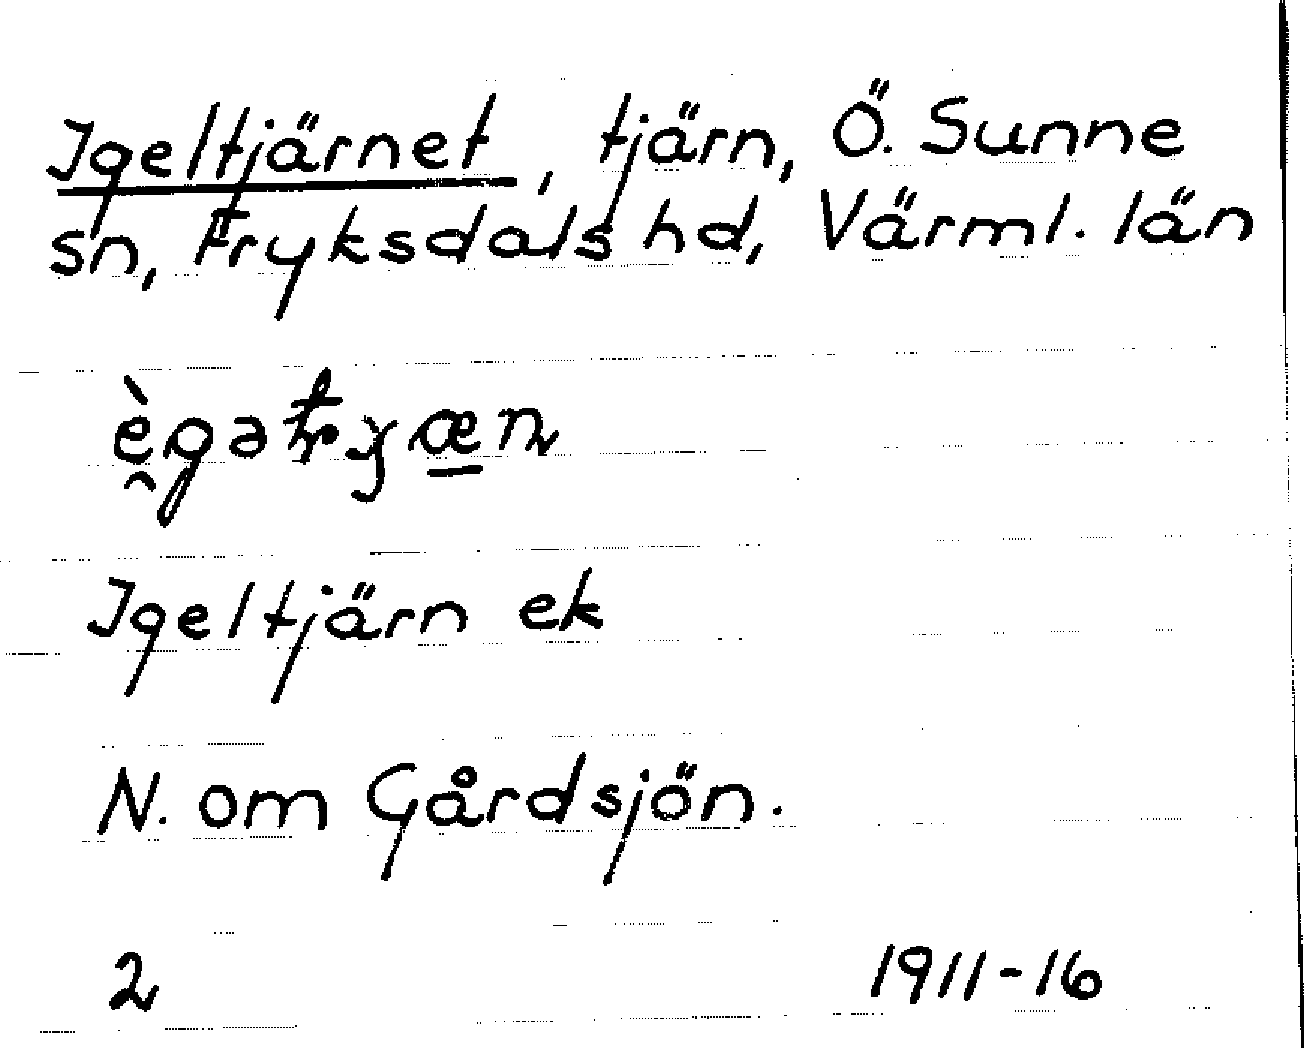 Igeltjärnet, tjärn, Ö. Sunne
sn, Fryksdals hd, Värml. län
Igeltjärn ek
N. om Gårdsjön.
2 1911-16